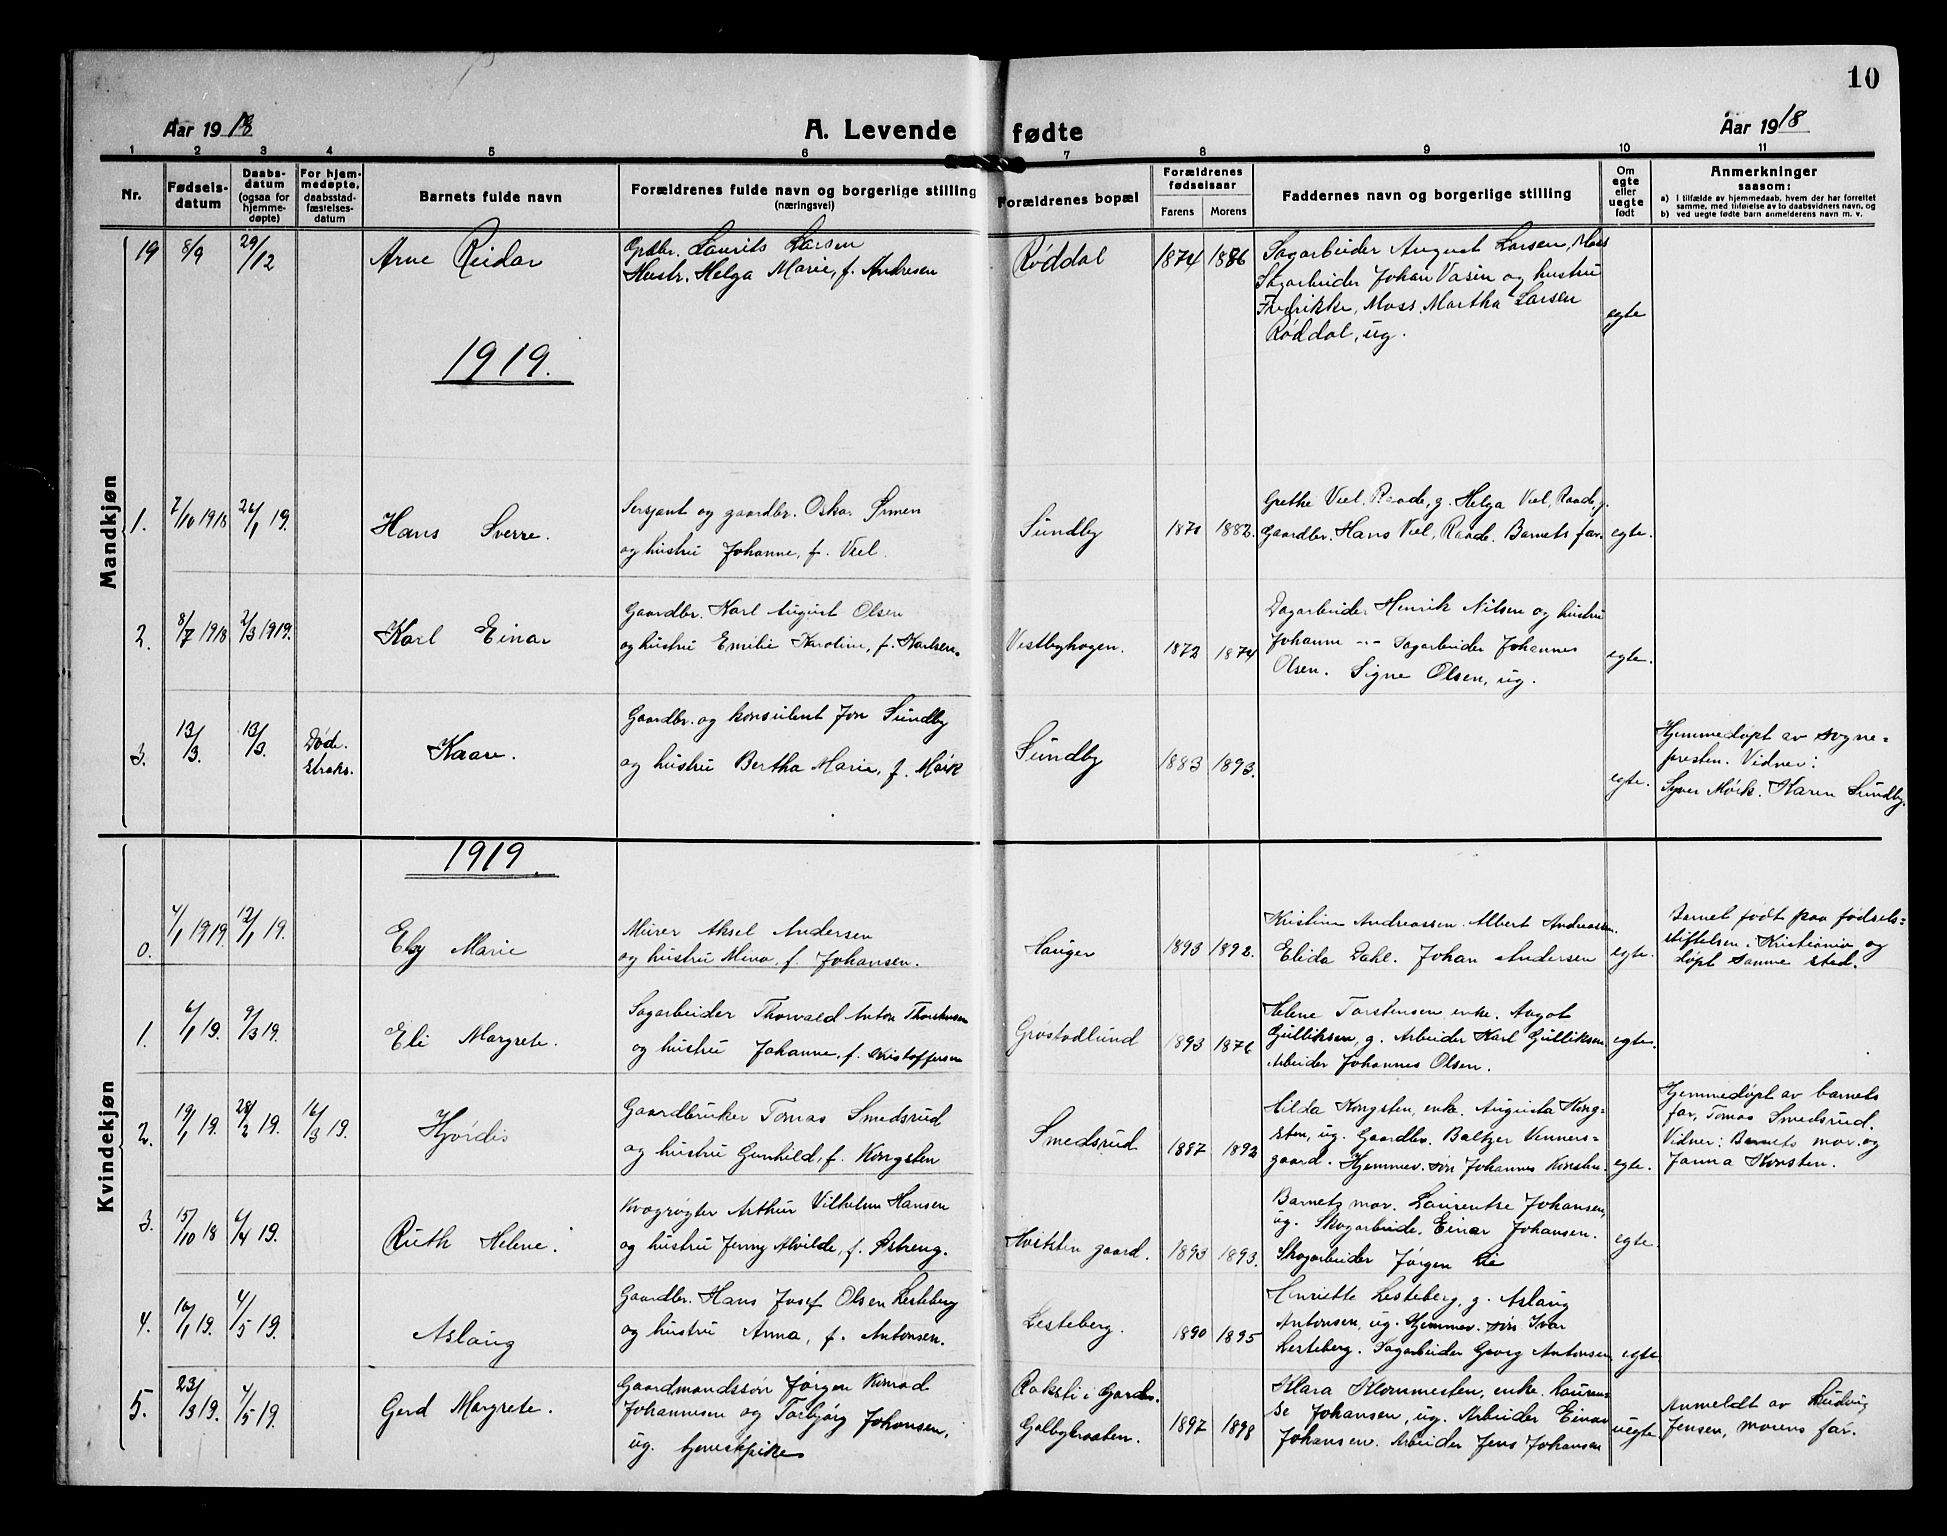 10
Aar 1918
A. Levende fødte
Aar 1918
1 2 3 4 5 6 7 8 9 10 11
Nr.
Fødselsdatum
Daabsdatum (ogsaa for hjemmedøpte)
For hjemmedøpte, daabsstadfæstelsesdatum
Barnets fulde navn
Forældrenes fulde navn og borgerlige stilling
(næringsvei)
Forældrenes bopæl
Forældrenes fødselsaar
Farens Morens
Faddernes navn og borgerlige stilling
Om egte eller uegte født
Anmerkninger
saasom:
a) i tilfælde av hjemmedaab, hvem der har forrettet samme, med tilføielse av to daabsvidners navn, og
b) ved uegte fødte barn anmelderens navn m. v.
Mandkjøn
19 8/9 29/12 Arne Reidar
Gpdbr. Laurits Larsen
Hustr. Helga Marie, f. Andresen
Røddal 1874 1886
Sagarbeider August Larsen, Moss
Sagarbeider Johan Vasin og hustru
Fredrikke, Moss. Martha Larsen
Røddal, ug.
egte
1919.
1. 7/10 1918 26/1 19. Hans Sverre.
Sersjant og gaardbr. Oskar
og hustru Johanne, f. Viel.
Sundby 1870 1882.
Grethe Viel, Raade, g. Helga Viel, Raade, g.
Gaardbr. Hans Viel, Raade. Barnets far.
egte.
2. 8/7 1918 2/3 1919. Karl Einar
Gaardbr. Karl August Olsen
og hustru Emilie Karoline, f. Karlsen.
Vestbyhagen. 1872 1874
Dagarbeider Henrik Nilsen og hustru
Johanne -.- Sagarbeider Johannes
Olsen. Signe Olsen, ug.
egte.
3. 13/3 13/3. Døde straks. Kaare.
Gaardbr. og konsulent Jon Sundby
og hustru Bertha Marie, f. Mørk
Sundby 1883 1893.
egte.
Hjemmedøpt av sogne=
presten. Vidner:
Syver Mørk. Karen Sundby.
Kvindekjøn
1919.
0. 4/1 1919 12/1 19. Elsy Marie
Murer Aksel Andersen
og hustru Mina, f. Johansen.
Hauger 1893 1892.
Kristine Andreassen. Albert Andreassen.
Elida Dahl. Johan Andersen
egte.
Barnet født paa fødsels=
stiftelsen. Kristiania og
døpt samme sted.
1. 6/1 19. 9/3 19. Eli Margrete.
Sagarbeider Thorvald Anton Thorkensen
og hustru Johanne, f. Kristoffersen
Grøstadlund 1893 1876
Helene Torstensen, enke. Aagot
Gulliksen, g. Arbeider Karl Gulliksen
Arbeider Johannes Olsen.
egte.
2. 19/1 19. 28/2 19. 16/3 19. Hjørdis
Gaardbruker Tomas Smedsrud
og hustru Gunhild, f. Kongsten
Smedsrud 1887 1892
Hilda Kongsten, enke. Augusta Kong=
sten, ug. Gaardbr. Baltzer Venners=
gaard. Hjemmev. søn Johannes Konsten.
egte.
Hjemmedøpt av barnets
far, Tomas Smedsrud.
Vidner: Barnets mor. og
Janna Konsten.
3. 15/10 18 6/4 19. Ruth Helene.
Kvægrøgter Arthur Vilhelm Hansen
og hustru Jenny Alvilde, f. Østreng.
Hvitsten gaard. 1893 1893.
Barnets mor. Laurentse Johansen,
ug. Skogarbeide. Einar Johansen.
Skogarbeider Jørgen Lie
egte.
4. 16/1 19. 4/5 19. Aslaug
Gaardbr. Hans Josef Olsen Lesteberg
og hustru Anna, f. Antonsen.
Lesteberg. 1890 1895
Henriette Lesteberg, g. Aslaug
Antonsen, ug. Hjemmev. søn Ivar
Lesteberg. Sagarbeider Georg Antonsen
egte
5. 23/3 19. 4/5 19. Gerd Margrete.
Gaardmandssøn Jørgen Konrad
Johannesen og Torbjørg Johansen,
ug. tjenestpike
Raksti i Garder.
Galbybraaten. 1897 1898
Klara Klommesten, enke. Lauren-
se Johansen, ug. Arbeider Einar
Johansen. Arbeider Jens Johansen
uegte
Anmeldt av Ludvig
Jensen, morens far.